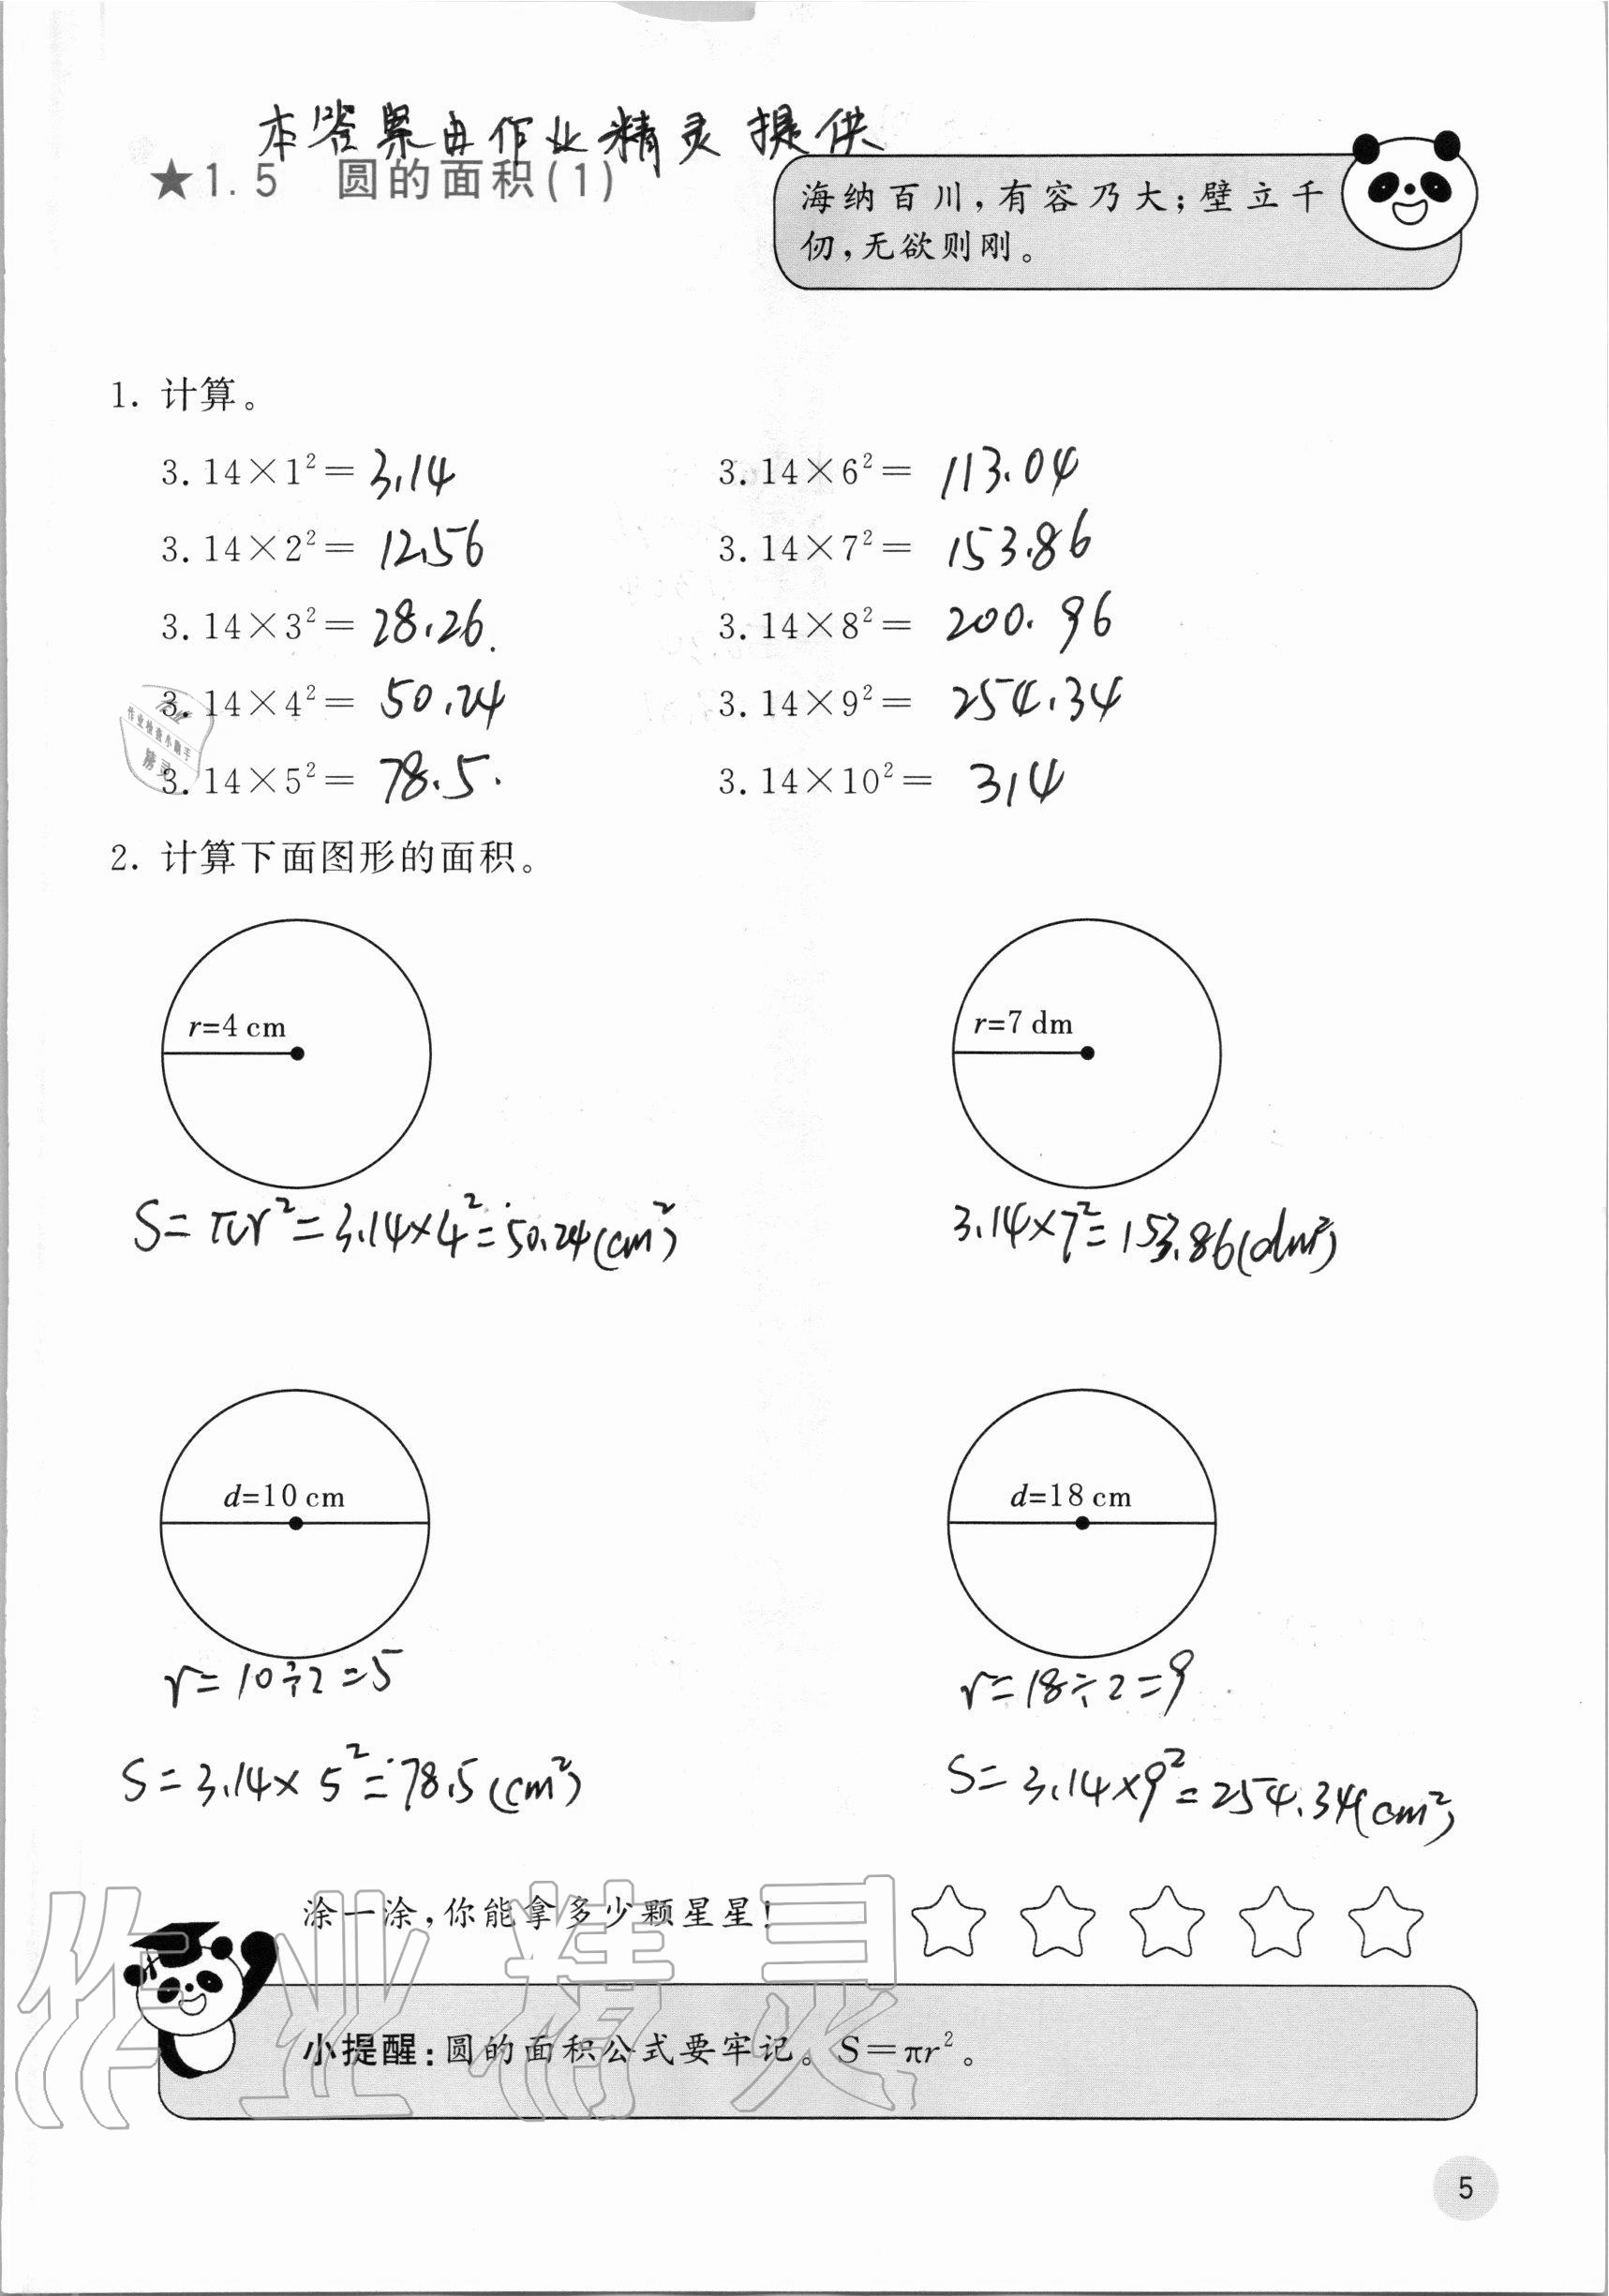 本答案由作业精灵提供
★1.5 圆的面积(1)
海纳百川,有容乃大;壁立千
仞,无欲则刚。
1. 计算。
3.14×1²=3.14 3.14×6²=113.04
3.14×2²=12.56 3.14×7²=153.86
3.14×3²=28.26. 3.14×8²=200.96
3.14×4²=50.24 3.14×9²=254.34
3.14×5²=78.5. 3.14×10²=314
作业
作业检查小助手
精灵
2. 计算下面图形的面积。
r=4 cm r=7 dm
S=πr²=3.14×4²=50.24(cm²) 3.14×7²=153.86(dm²)
d=10 cm d=18 cm
r=10÷2=5 r=18÷2=9
S=3.14×5²=78.5(cm²) S=3.14×9²=254.34(cm²)
涂一涂,你能拿多少颗星星!
作业精灵
小提醒:圆的面积公式要牢记。S=πr²。
5